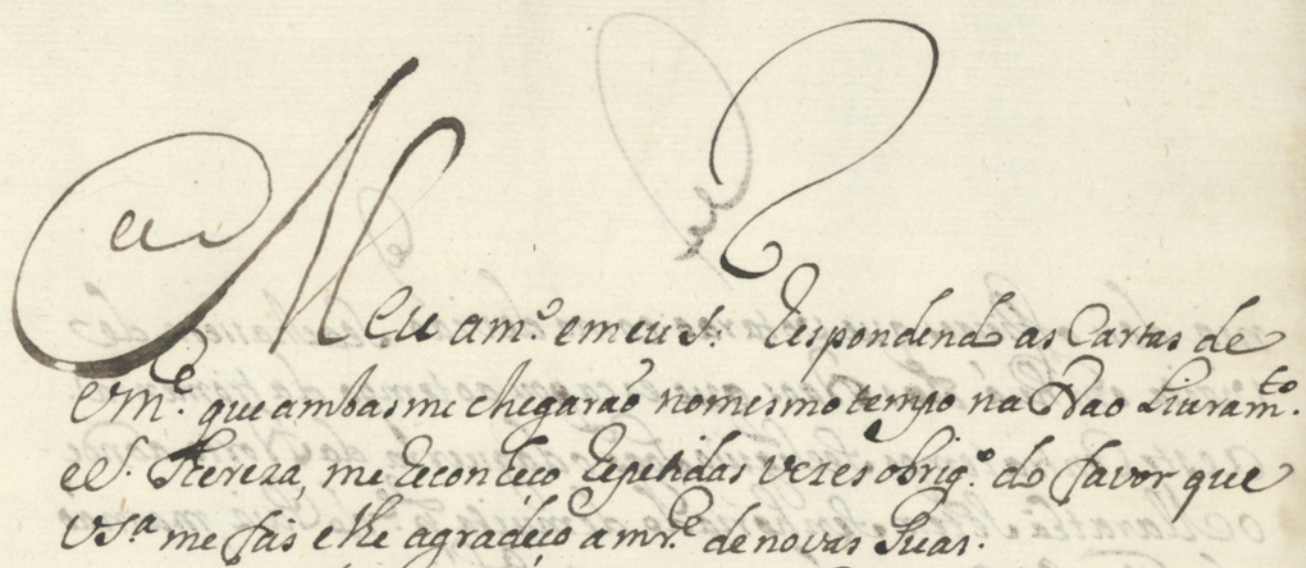 Meu am.º e meu S.r Respondendo as Cartas de
V M.ce que ambas me chegaraõ no mesmo tempo na Nao Livram.to
e S. Thereza, me reconheço repetidas vezes obrig.º do favor que
V S.ª me fás e lhe agradeço a m.ce de novas suas.